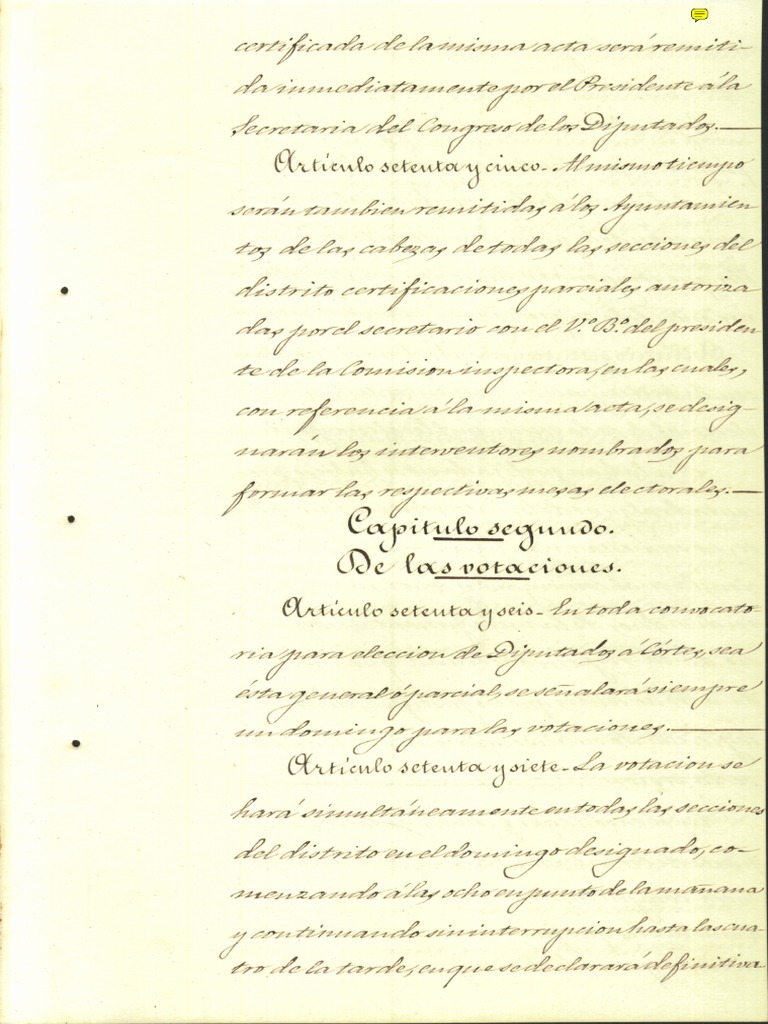 certificada de la misma acta será remiti-
da inmediatamente por el Presidente á la
Secretaria del Congreso de los Diputados.
Artículo setenta y cinco. Al mismo tiempo
serán tambien remitidas á los Ayuntamien
tos de las cabezas de todas las secciones del
distrito certificaciones parciales autoriza
das por el secretario con el V.º B.º del presiden
te de la Comision inspectora, en las cuales,
con referencia á la misma acta, se desig-
narán los interventores nombrados para
formar las respectivas mesas electorales.
Capitulo segundo.
De las votaciones.
Artículo setenta y seis- En toda convocato-
ria para eleccion de Diputados á Córtes, sea
ésta general ó parcial, se señalará siempre
un domingo para las votaciones.
Artículo setenta y siete- La votacion se
hará simultáneamente en todas las secciones
del distrito en el domingo designado, co-
menzando á las ocho en punto de la mañana
y continuando sin interrupcion hasta las cua-
tro de la tarde, en que se declarará definitiva